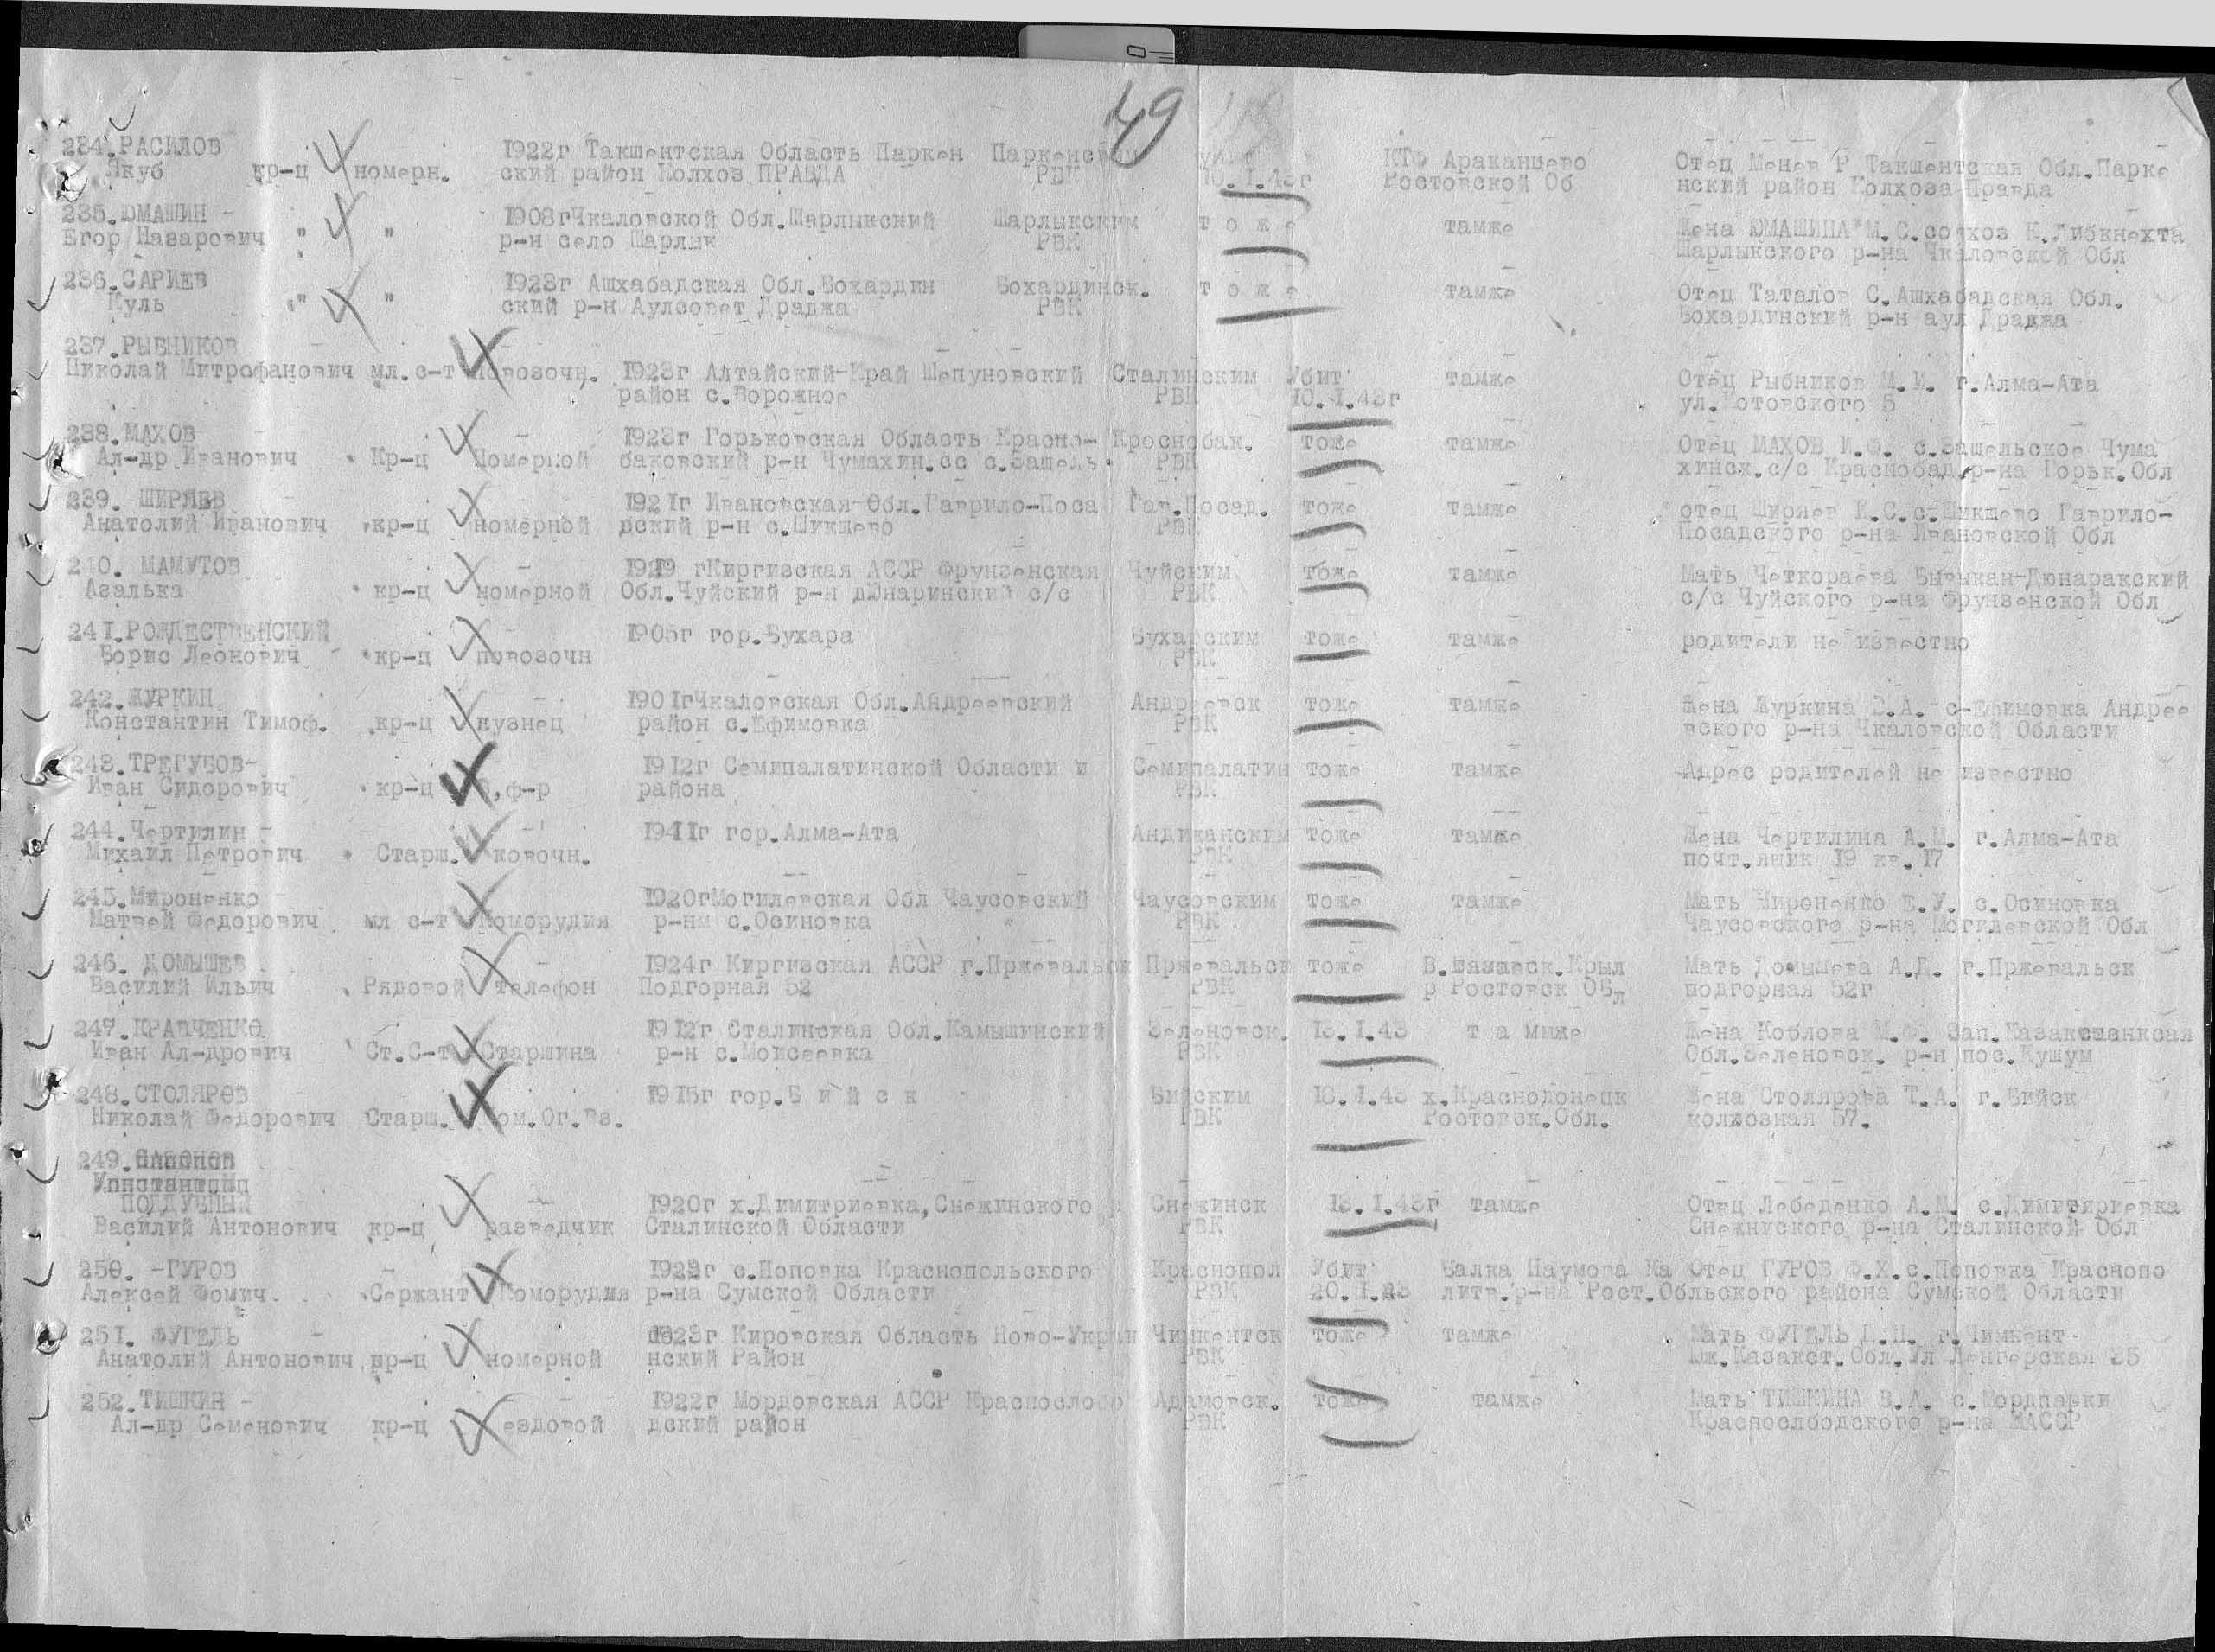 49
234. РАСИЛОВ 1922г Ташкентская Область Паркен Паркенским убит КТФ Араканцево Отец Менев Р Такшентская Обл.Парке
Якуб кр-ц номерн. ский район Колхоз ПРАВДА РВК 10.I.43г Ростовской Об нский район Колхоза Правда
235. ЮМАШИН - 1908гЧкаловской Обл.Шарлыкский Шарлыкским т о ж е тамже Жена ЮМАШИНА М.С.совхоз К.Либкнехта
Егор Назарович " " р-н село Шарлык РВК Шарлыкского р-на Чкаловской Обл
236. САРИЕВ 1923г Ашхабадская Обл.Бохардин Бохардинск. т о ж е тамже Отец Таталов С.Ашхабадская Обл.
Куль " " ский р-н Аулсовет Драджа РВК Бохардинский р-н аул Драджа
237. РЫБНИКОВ
Николай Митрофанович мл.с-т повозочн. 1923г Алтайский Край Шепуновский Сталинским Убит тамже Отец Рыбников М.И. г.Алма-Ата
район с.Ворожное РВК 10.I.43г ул.Котовского 5
238. МАХОВ 1923г Горьковская Область Красно- Кроснобак. тоже тамже Отец МАХОВ И.Ф. с.Зашельское Чума
Ал-др Иванович Кр-ц Номерной баковский р-н Чумахин.сс с.Зашель. РВК хинск.с/с Краснобад.р-на Горьк.Обл
239. ШИРЯЕВ 1921г Ивановская Обл.Гаврило-Поса Гав.Посад. тоже тамже отец Ширяев К.С.с.Шикшево Гаврило-
Анатолий Иванович кр-ц номерной дский р-н с.Шикшево РВК Посадского р-на Ивановской Обл
240. МАМУТОВ 1919 гКиргизская АССР Фрунзенская Чуйским тоже тамже Мать Четкораева Бывыкан-Дюнаракский
Азалька кр-ц номерной Обл.Чуйский р-н дюнаринский с/с РВК с/с Чуйского р-на Фрунзенской Обл
241. РОЖДЕСТВЕНСКИЙ 1905г гор.Бухара Бухарским тоже тамже родители не известно
Борис Леонович кр-ц повозочн РВК
242. ЖУРКИН 1901гЧкаловская Обл.Андреевский Андреевск тоже тамже Жена Журкина Е.А. с-Ефимовка Андрее
Константин Тимоф. кр-ц кузнец район с.Ефимовка РВК вского р-на Чкаловской Области
243. ТРЕГУБОВ- 1912г Семипалатинской Области и Семипалатин тоже тамже Адрес родителей не известно
Иван Сидорович кр-ц ,ф-р района РВК
244. Чертилин - 1911г гор.Алма-Ата Андижанским тоже тамже Жена Чертилина А.М. г.Алма-Ата
Михаил Петрович Старш. ковочн. РВК почт.ящик 19 кв.17
245. Мироненко 1920гМогилевская Обл Чаусовский Чаусовским тоже тамже Мать Мироненко Е.У. с.Осиновка
Матвей Федорович мл с-т Коморудия р-нм с.Осиновка РВК Чаусовского р-на Могилевской Обл
246. ДОМЫШЕВ 1924г Киргизская АССР г.Пржевальск Пржевальск тоже Мать Домышева А.Д. г.Пржевальск
Василий Ильич Рядовой телефон Подгорная 52 РВК р Ростовск Обл подгорная 52г
247. КРАВЧЕНКО 1912г Сталинская Обл.Камышинский Зеленовск. 13.I.43 т а мже Жена Коблова М.Ф. Зап.Казакстанксая
Иван Ал-дрович Ст.С-т Старшина р-н с.Моисеевка РВК Обл.Зеленовск. р-н пос.Кушум
248. СТОЛЯРОВ 1915г гор.Б и й с к Бийским 18.I.43 х.Краснодонецк Жена Столярова Т.А. г.Бийск
Николай Федорович Старш. Ком.Ог.Вз. РВК Ростовск.Обл. колхозная 57.
249.
ПОДДУБНЫЙ 1920г х.Димитриевка,Снежинского Снежинск 18.I.43г тамже Отец Лебеденко А.М. с.Димитяриевка
Василий Антонович кр-ц разведчик Сталинской Области РВК Снежниского р-на Сталинской Обл
250. -ГУРОВ 1923г с.Поповка Краснопольского Краснопол Убит Балка Наумова Ка Отец ГУРОВ Ф.Х.с.Поповка Краснопо
Алексей Фомич. Сержант Коморудия р-на Сумской Области РВК 20.I.43 литв.р-на Рост.Обльского района Сумской Области
251. ФУГЕЛЬ 1923г Кировская Область Ново-Украи Чимкентск тоже тамже Мать ФУГЕЛЬ П.Н. г.Чимкент
Анатолий Антонович кр-ц номерной нский Район РВК Юж.Казакст.Обл.Ул Ленгерская 35
252. ТИШКИН - 1922г Мордовская АССР Краснослобо Адамовск. тоже тамже Мать ТИШКИНА В.А. с.Мордпарки
Ал-др Семенович кр-ц ездовой дский район РВК Краснослбодского р-на МАССР